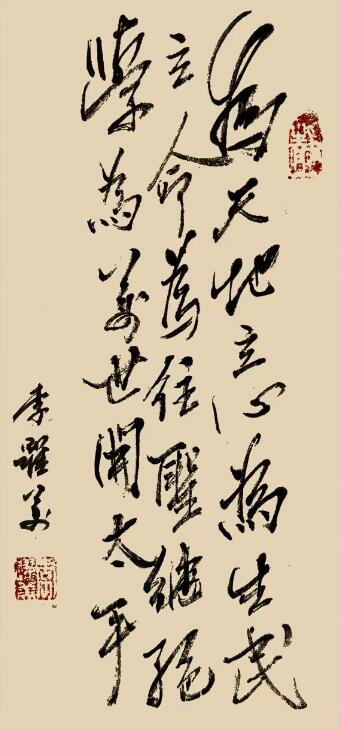 为天地立心為生民
立命為往聖继绝
學為万世開太平
李躍華